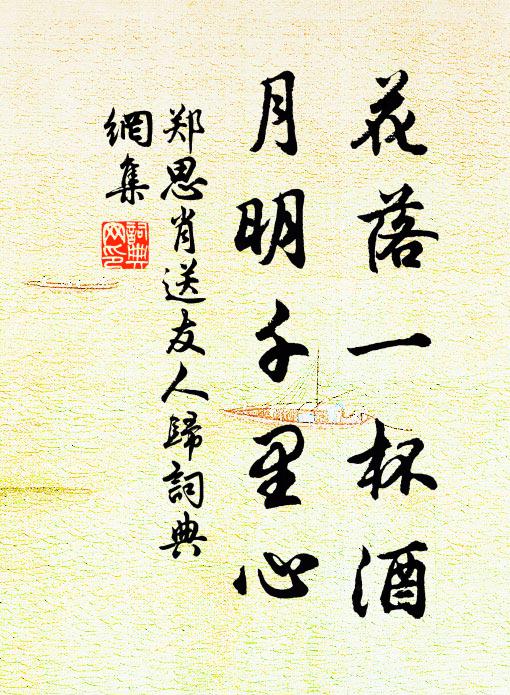 花落一杯酒
月明千里心
郑思肖送友人歸詞典
網集
詞典
网印